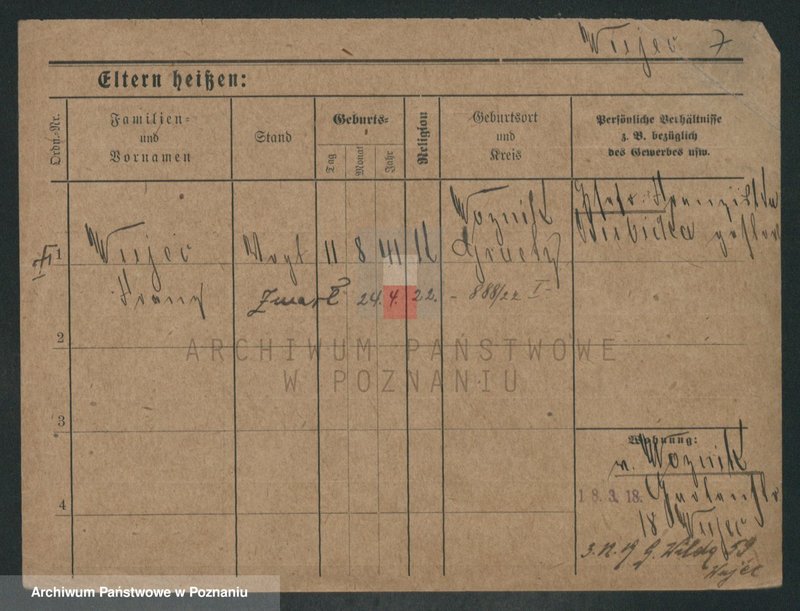 Wujec 7
Eltern heißen:
Ordn.-Nr.
Familien-
und
Vornamen
Stand
Geburts-
Tag
Monat
Jahr
Religion
Geburtsort
und
Kreis
Persönliche Verhältnisse
z. B. bezüglich
des Gewerbes usw.
1
Wujec
Franz
Vogt
11 8 41
Woznik
Graetz
Zmarł 24. 4. 22. - 888/22 I
2
3
4
Wohnung:
v. Woznik
18. 3. 18.
18 Wujec
59
Wujec
ARCHIWUM PAŃSTWOWE
W POZNANIU
Archiwum Państwowe w Poznaniu